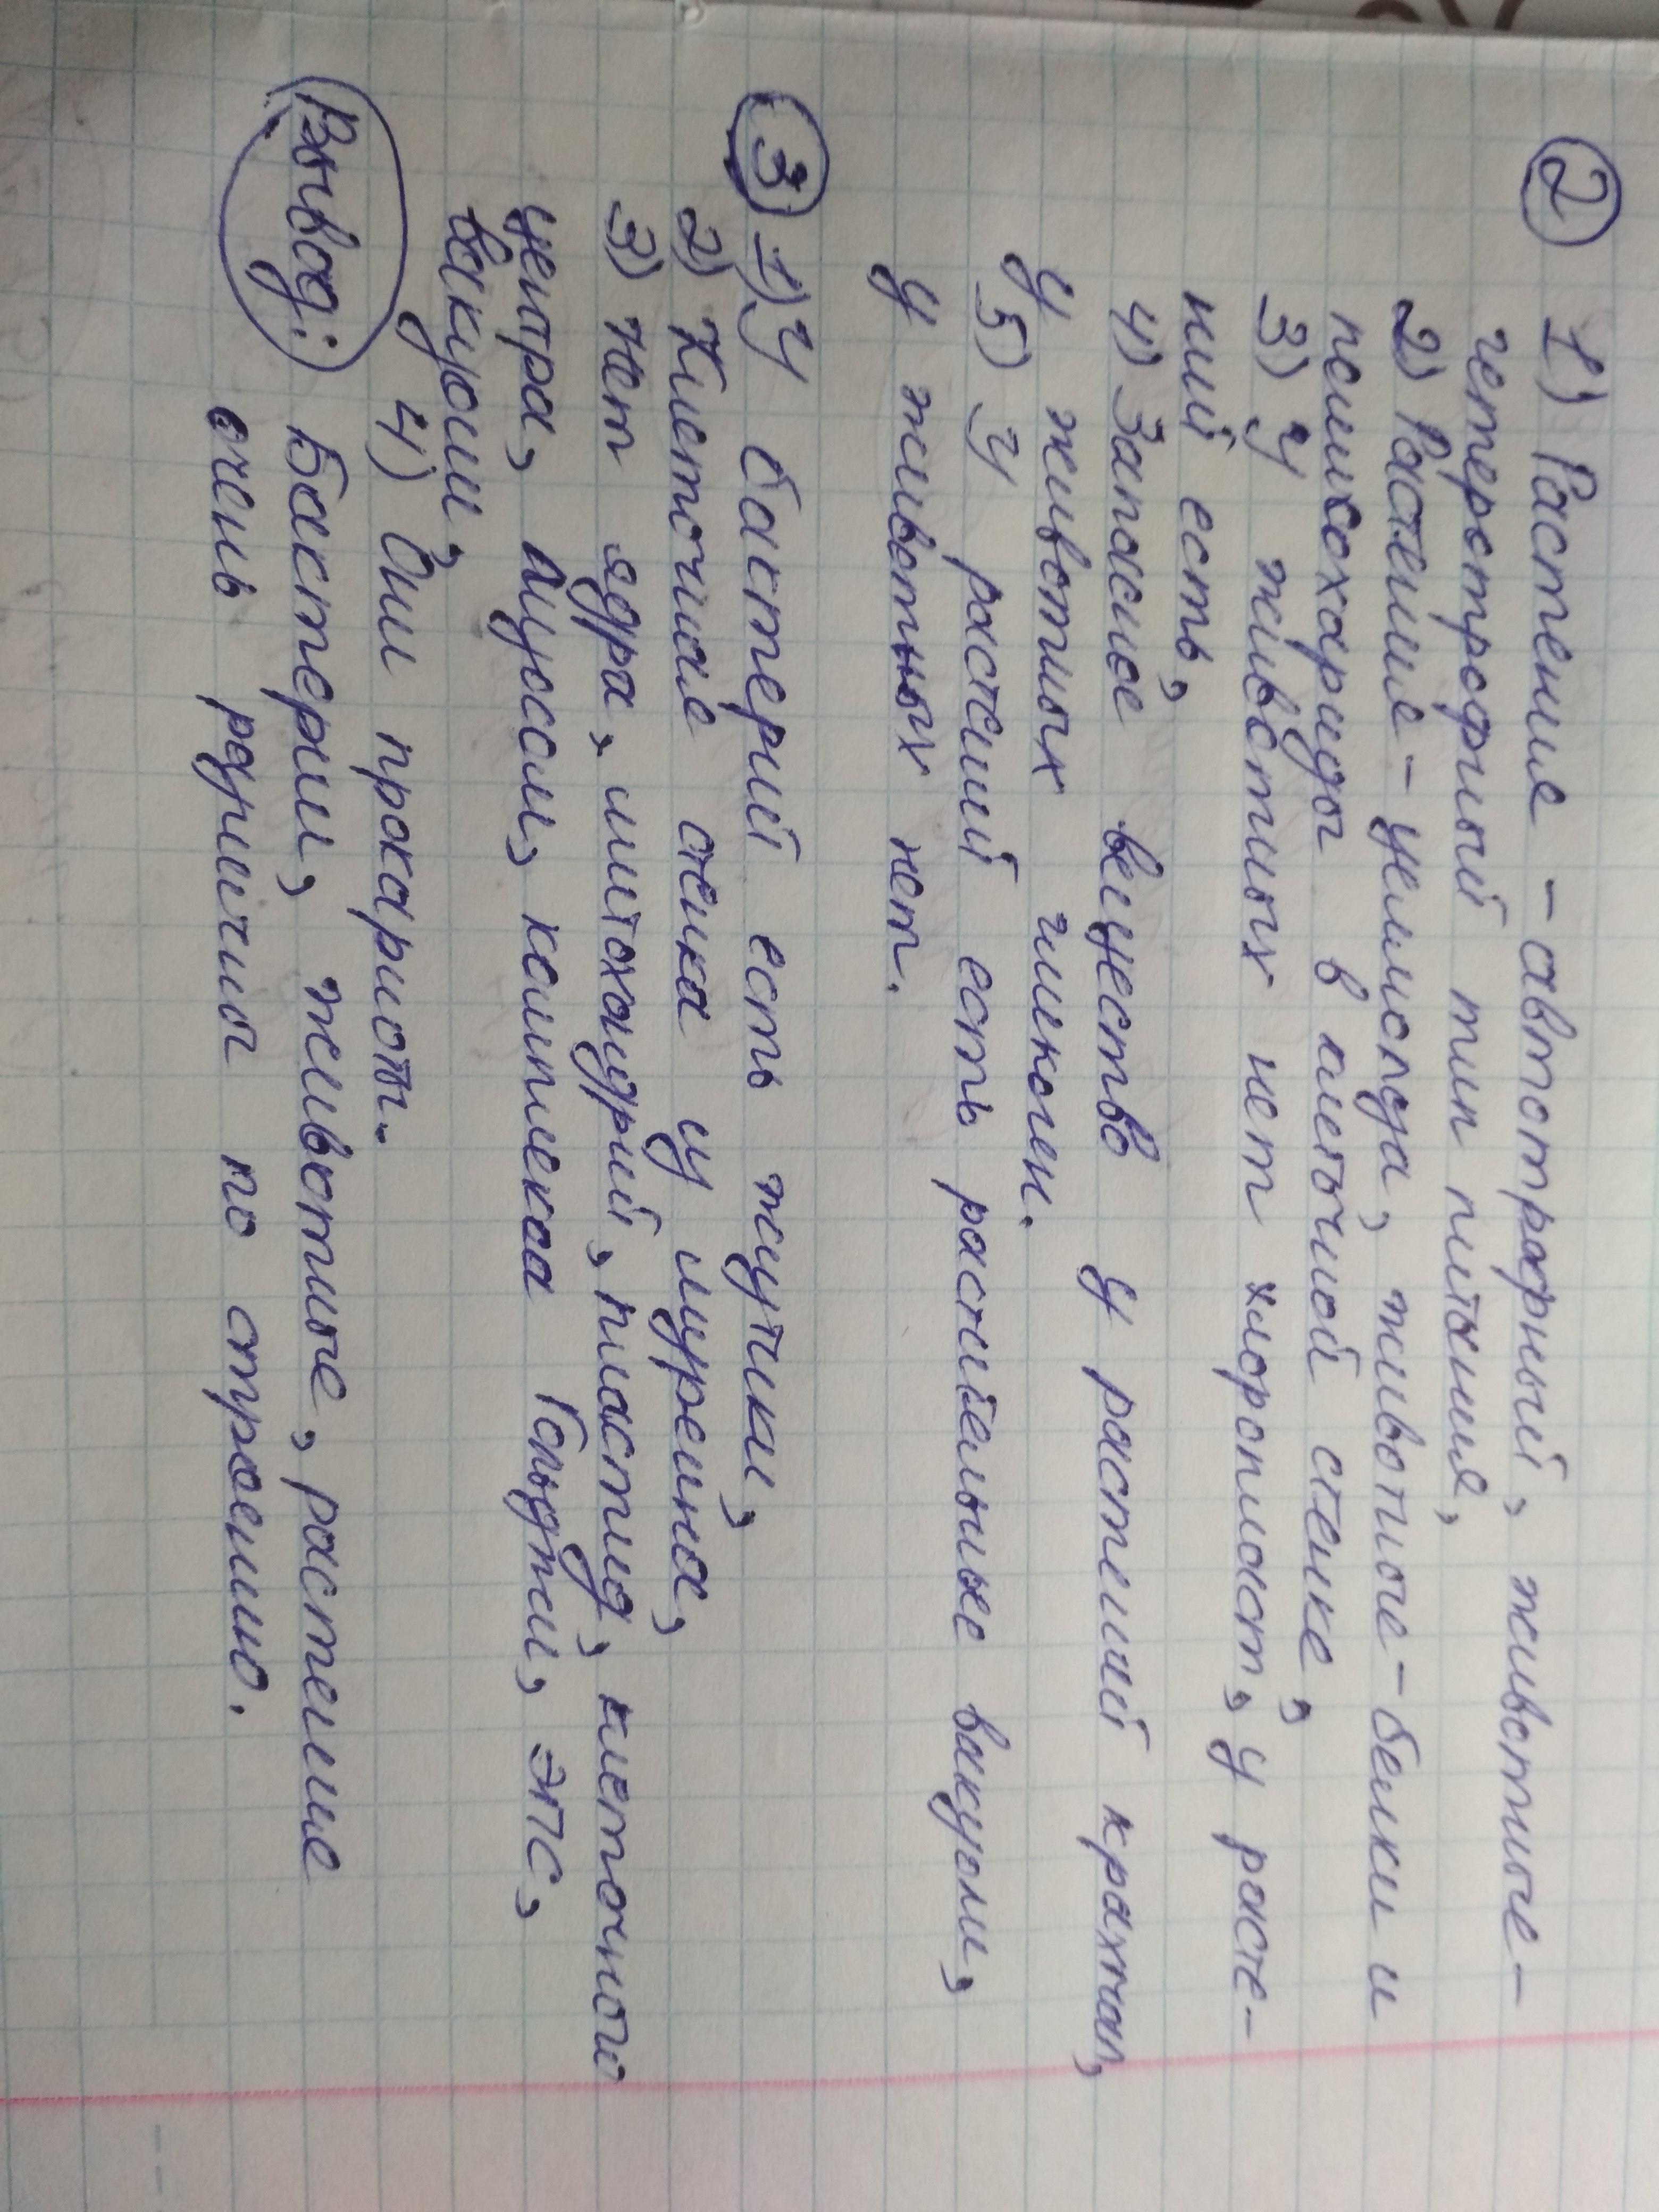 ② 1) Растение – автотрофный, животные –
гетеротрофный тип питания,
2) Растение – целлюлоза, животные – белки и
полисахариды в клеточной стенке,
3) У животных нет хлоропласт, у расте-
ний есть,
4) Запасное вещество у растений крахмал,
у животных гликоген.
5) У растений есть растительные вакуоли,
у животных нет.
③ 1) У бактерий есть жгутики,
2) Клеточная стенка из муреина,
3) Нет ядра, митохондрий, пластид, клеточного
центра, лизосом, комплекса Гольджи, ЭПС,
вакуоли,
4) Они прокариоты.
Вывод: Бактерии, животные, растение
очень различны по строению.